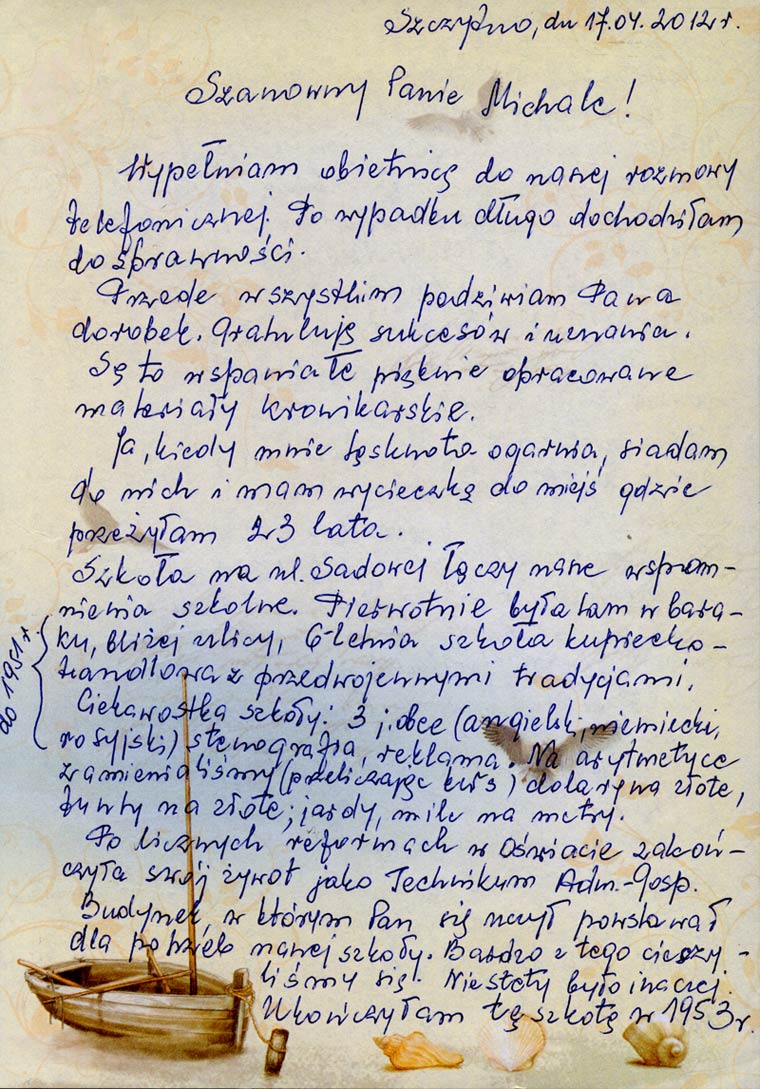 Szczytno, dn 17.04.2012 r.
Szanowny Panie Michale!
Wypełniam obietnicę do naszej rozmowy
telefonicznej. Po wypadku długo dochodziłam
do sprawności.
Przede wszystkim podziwiam Pana
dorobek. Gratuluję sukcesów i uznania.
Są to wspaniałe pięknie opracowane
materiały kronikarskie.
Ja, kiedy mnie tęsknota ogarnia, siadam
do nich i mam wycieczkę do miejś gdzie
przeżyłam 23 lata.
Szkoła na ul. Sadowej łączy nasze wspom-
nienia szkolne. Pierwotnie była tam w bara-
ku, bliżej ulicy, 6-letnia szkoła kupiecko-
handlowa z przedwojennymi tradycjami.
do 1951 r.
Ciekawostka szkoły: 3 j. obce (angielski, niemiecki,
rosyjski) stenografia, reklama. Na arytmetyce
zamienialiśmy (przeliczając kurs) dolary na złote,
funty na złote; jardy, mile na metry.
Po licznych reformach w Oświacie zakoń-
czyła swój żywot jako Technikum Adm.-Gosp.
Budynek, w którym Pan się uczył powstawał
dla potrzeb naszej szkoły. Bardzo z tego cieszy-
liśmy się. Niestety było inaczej.
Ukończyłam tę szkołę w 1953 r.